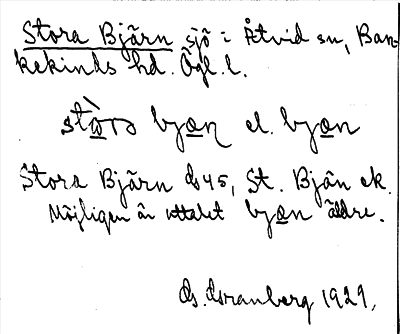 Stora Bjärn sjö i Åtvid sn, Ban-
kekinds hd. Ögl. l.
bjæn el. bjæn
Stora Bjärn ds 45, St. Bjän ek.
Möjligen är uttalet bjæn äldre.
1929.